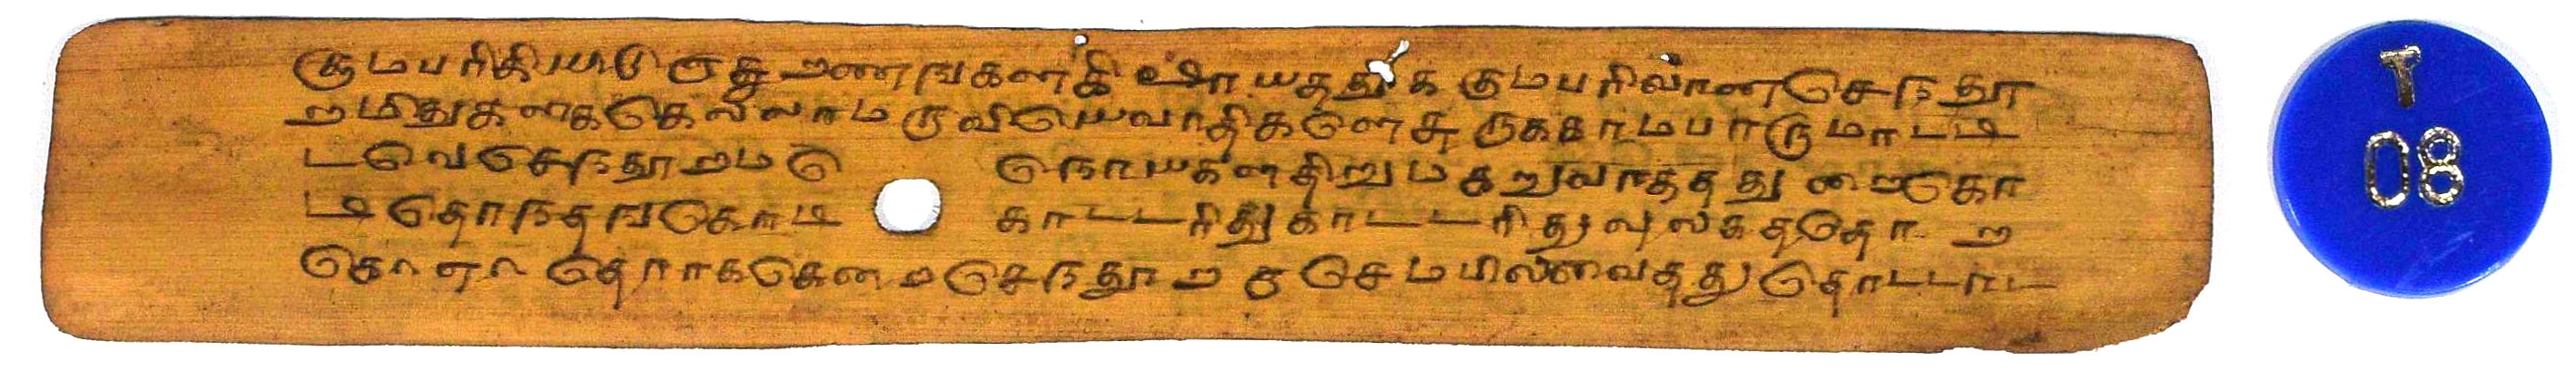 கூமபரிகியாடுருசூறணஙகளகி ஷாயததுக குமபரிலானசெநதூ
றமிதுகளககெலலாமருவியெவாதிகளெசுருககாமபாருமாடடி
டவெசெநதூறமெ நொயகளதிறுமகறுவாததது றைகொ
டிதொநதஙகொடி காடடரிதுகாடடரிதுவுலகததொ ற
கொளா தொாககெனறசெநதூறத செமபிலவைதது தொடடாட
T
08